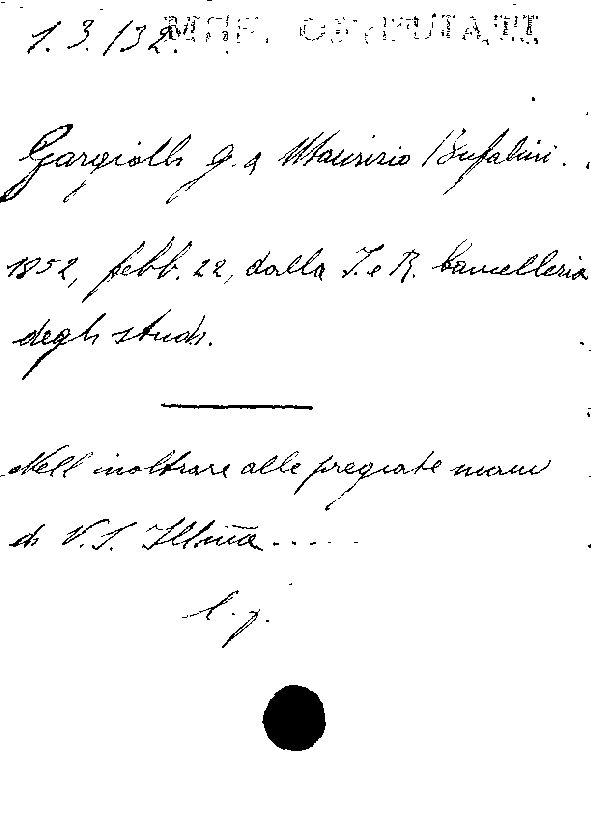 1.3./32. MSS. COMPUTATI
Gargiolli G. a Maurizio Bufalini.
1852, febb. 22, dalla I. e R. Cancelleria
degli studi.
Nell'inoltrare alle pregiate mani
di V. S. Illma.....
l. p.